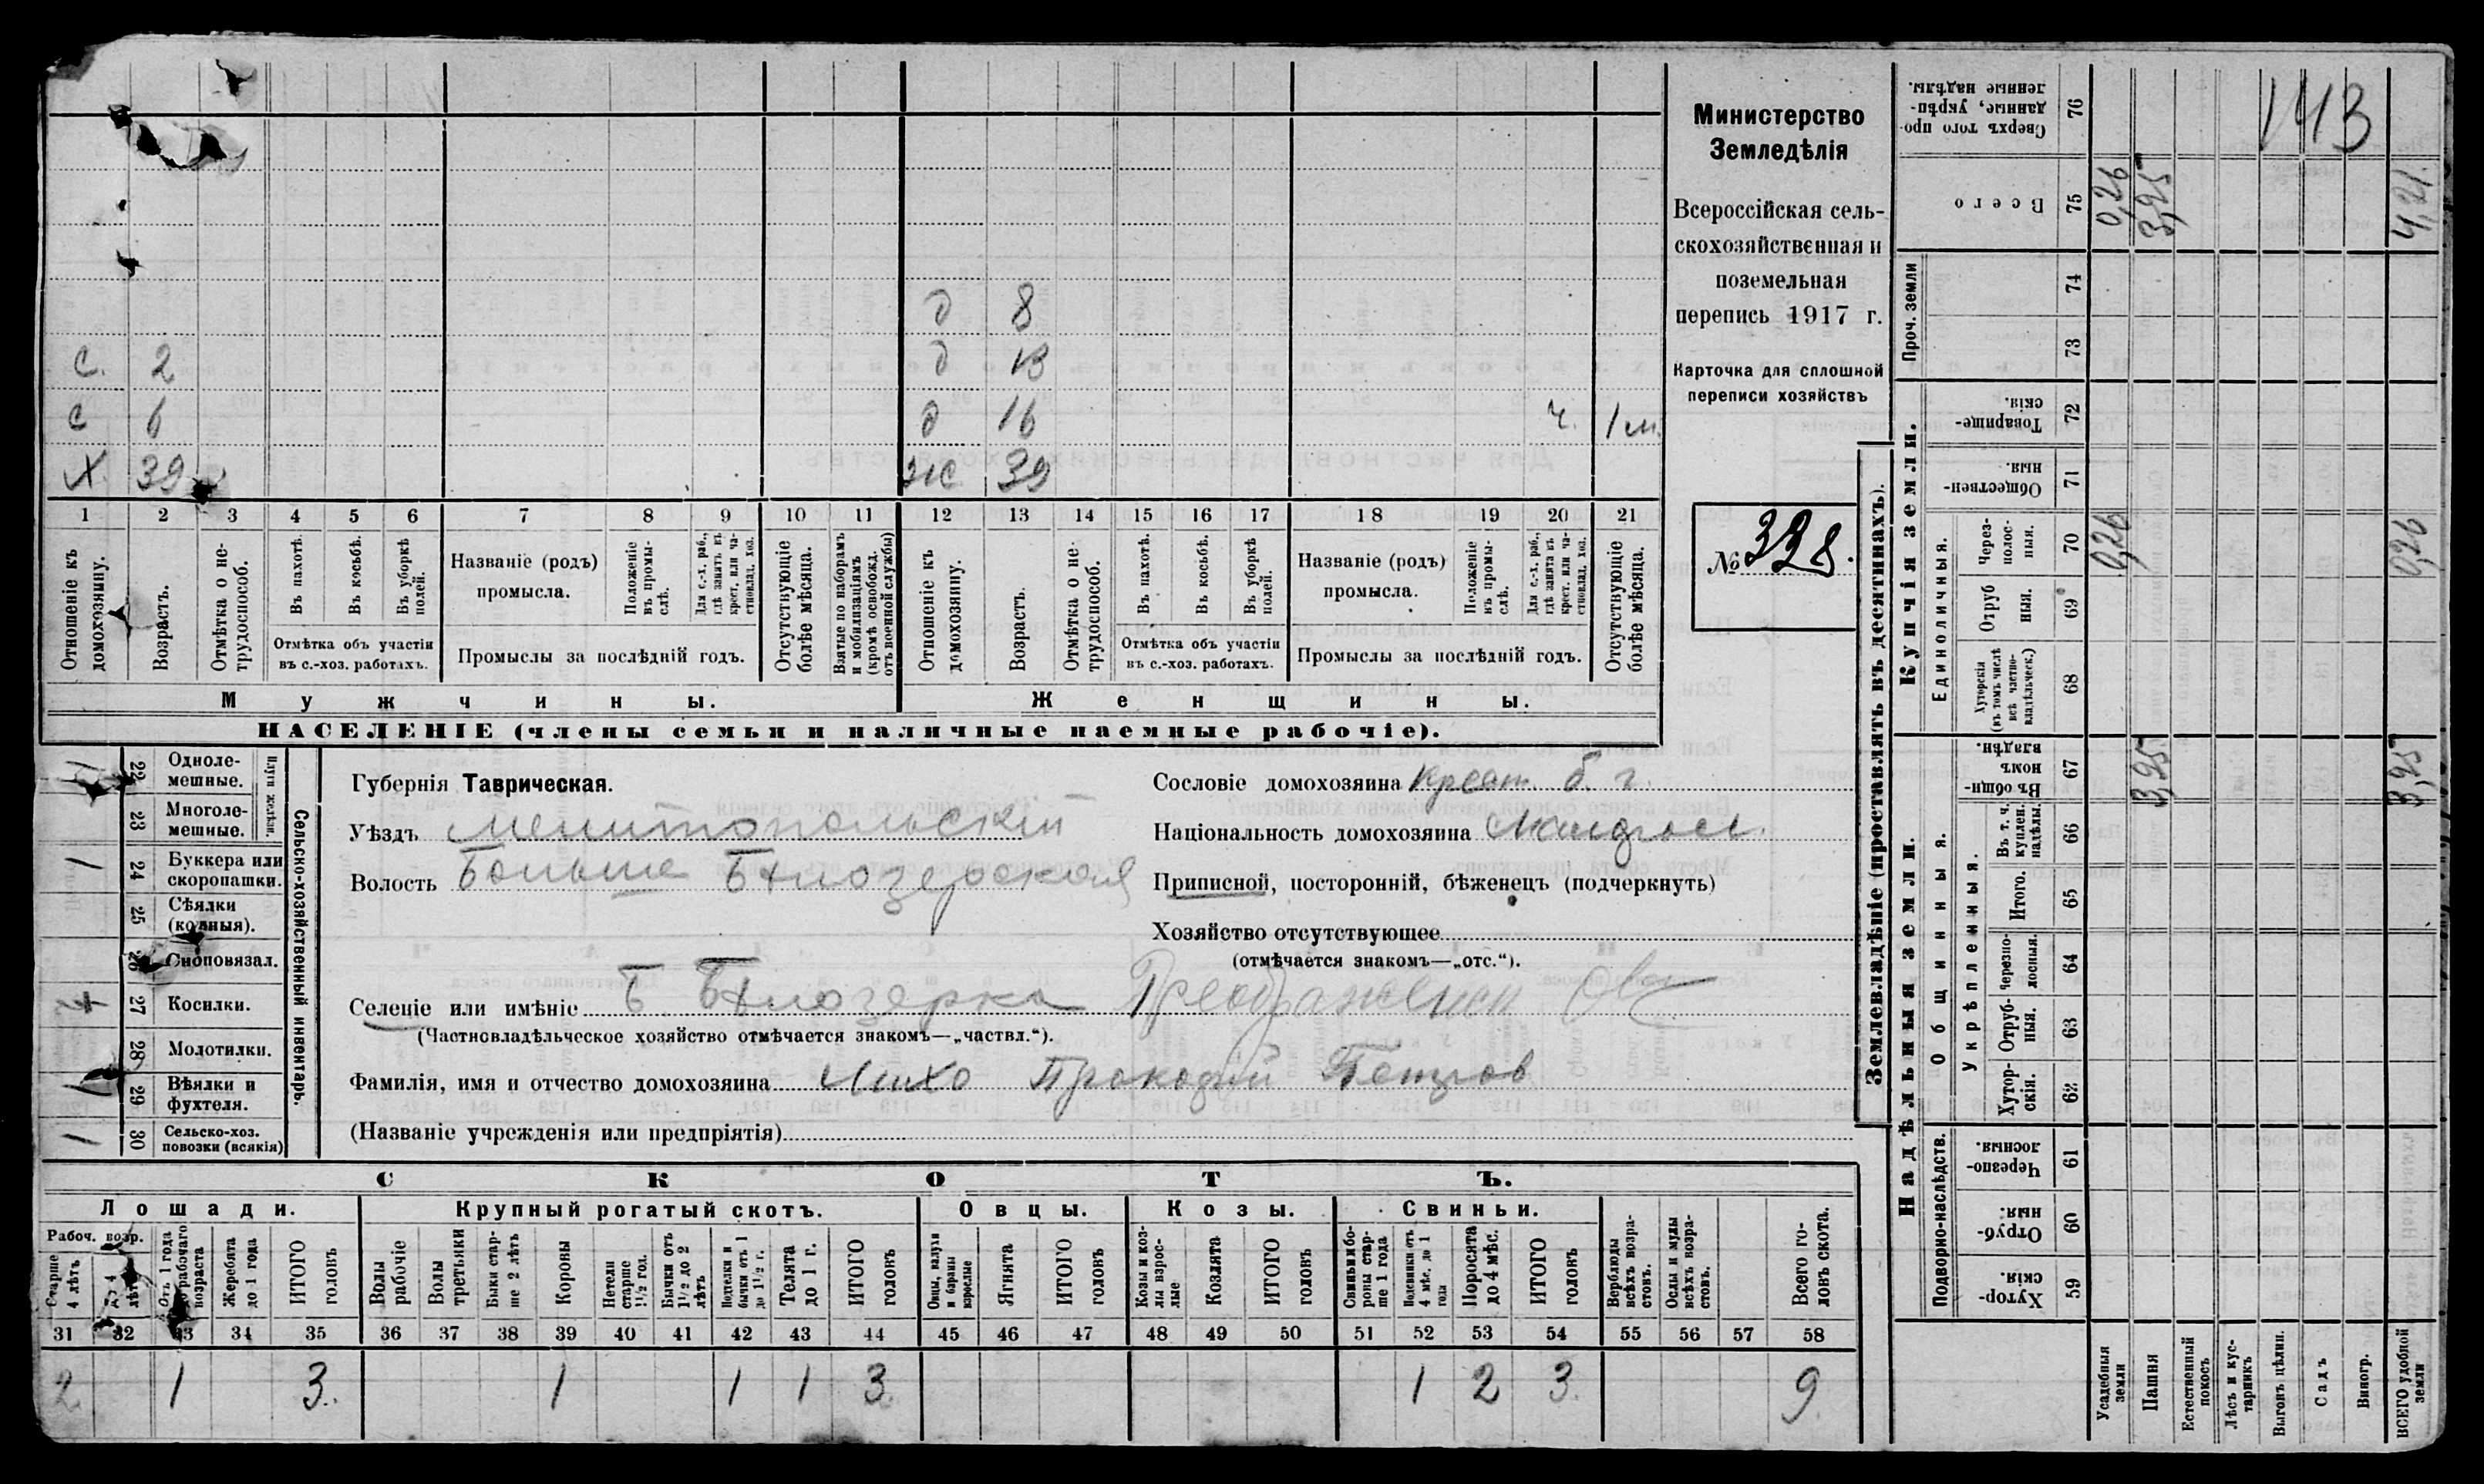 143
Министерство
Земледѣлія
Всероссійская сель-
скохозяйственная и
поземельная
перепись 1917 г.
Карточка для сплошной
переписи хозяйствъ
№ 338.
д 8
с. 2 д 13
с 6 д 16 ч. 1 м.
х 39 ж 39
1 2 3 4 5 6 7 8 9 10 11 12 13 14 15 16 17 18 19 20 21
Отношеніе къ домохозяину.
Возрастъ.
Отмѣтка о не-трудоспособ.
Въ пахотѣ.
Въ косьбѣ.
Въ уборкѣ полей.
Отмѣтка объ участіи
въ с.-хоз. работахъ.
Названіе (родъ)
промысла.
Положеніе въ промы-слѣ.
Для с.-х. раб., гдѣ занятъ въ крест. или ча-стновлад. хоз.
Промыслы за послѣдній годъ.
Отсутствующіе болѣе мѣсяца.
Взятые по наборамъ и мобилизаціямъ (кромѣ освобожд. отъ военной службы)
Отношеніе къ домохозяину.
Возрастъ.
Отмѣтка о не-трудоспособ.
Въ пахотѣ.
Въ косьбѣ.
Въ уборкѣ полей.
Отмѣтка объ участіи
въ с.-хоз. работахъ.
Названіе (родъ)
промысла.
Положеніе въ промы-слѣ.
Для с.-х. раб., гдѣ занята въ крест. или ча-стновлад. хоз.
Промыслы за послѣдній годъ.
Отсутствующіе болѣе мѣсяца.
Мужчины.
Женщины.
НАСЕЛЕНІЕ (члены семьи и наличные наемные рабочіе).
Сельско-хозяйственный инвентарь.
22 Одноле-мешные.
23 Многоле-мешные.
1 24 Буккера или скоропашки.
25 Сѣялки (конныя).
26 Сноповязал.
27 Косилки.
28 Молотилки.
1 29 Вѣялки и фухтеля.
1 30 Сельско-хоз. повозки (всякія)
Губернія Таврическая.
Уѣздъ Мелитопольскій
Волость Больше Бѣлозерская
Сословіе домохозяина Крест. б. г.
Національность домохозяина Малоросс.
Приписной, посторонній, бѣженецъ (подчеркнуть)
Хозяйство отсутствующее
(отмѣчается знакомъ—„отс.“).
Селеніе или имѣніе Б Бѣлозерка Преображенск
(Частновладѣльческое хозяйство отмѣчается знакомъ—„частвл.“).
Фамилія, имя и отчество домохозяина Лихо Прокофій Петров
(Названіе учрежденія или предпріятія)
СКОТЪ.
Лошади.
Крупный рогатый скотъ.
Овцы.
Козы.
Свиньи.
Рабоч. возр.
Старше 4 лѣтъ
до 4 лѣтъ
Отъ 1 года до рабочаго возраста
Жеребята до 1 года
ИТОГО головъ
Волы рабочіе
Волы третьяки
Быки стар-ше 2 лѣтъ
Коровы
Нетели старше 1½ год.
Бычки отъ 1½ до 2 лѣтъ
Подтелки и бычки отъ 1 до 1½ г.
Телята до 1 г.
ИТОГО головъ
Овцы, валухи и бараны взрослые
Ягнята
ИТОГО головъ
Козы и коз-лы взрос-лые
Козлята
ИТОГО головъ
Свиньи и бо-ровы стар-ше 1 года
Подсвинки отъ 4 мѣс. до 1 года
Поросята до 4 мѣс.
ИТОГО головъ
Верблюды всѣхъ возра-стовъ.
Ослы и мулы всѣхъ возра-стовъ.
Всего го-ловъ скота.
31 32 33 34 35 36 37 38 39 40 41 42 43 44 45 46 47 48 49 50 51 52 53 54 55 56 57 58
2 1 3. 1 1 1 3. 1 2 3. 9
Землевладѣніе (проставлять въ десятинахъ).
Сверхъ того про-данные, укрѣп-ленные надѣлы. 76
Всего 75 0,26 3,95 4,21.
Проч. земли 74 73
Купчія земли.
Товарище-скія. 72
Обществен-ныя. 71
Единоличныя.
Через-полос-ныя. 70 0,26 0,26
Отруб ныя. 69
Хуторскія (въ томъ числѣ всѣ частно-владѣльческ.) 68
Надѣльныя земли.
Общинныя.
Въ общин-номъ владѣн. 67 3,95 3,95
Укрѣпленныя.
Въ т. ч. куплен. надѣлы. 66
Итого. 65
Черезпо-лосныя. 64
Отруб-ныя. 63
Хутор-скія. 62
Подворно-наслѣдств.
Черезпо-лосныя. 61
Отруб-ныя. 60
Хутор-скія. 59
Усадебныя земли
Пашня
Естественный покосъ
Лѣсъ и кус-тарникъ
Выгонъ цѣлин.
Садъ
Виногр.
ВСЕГО удобной земли